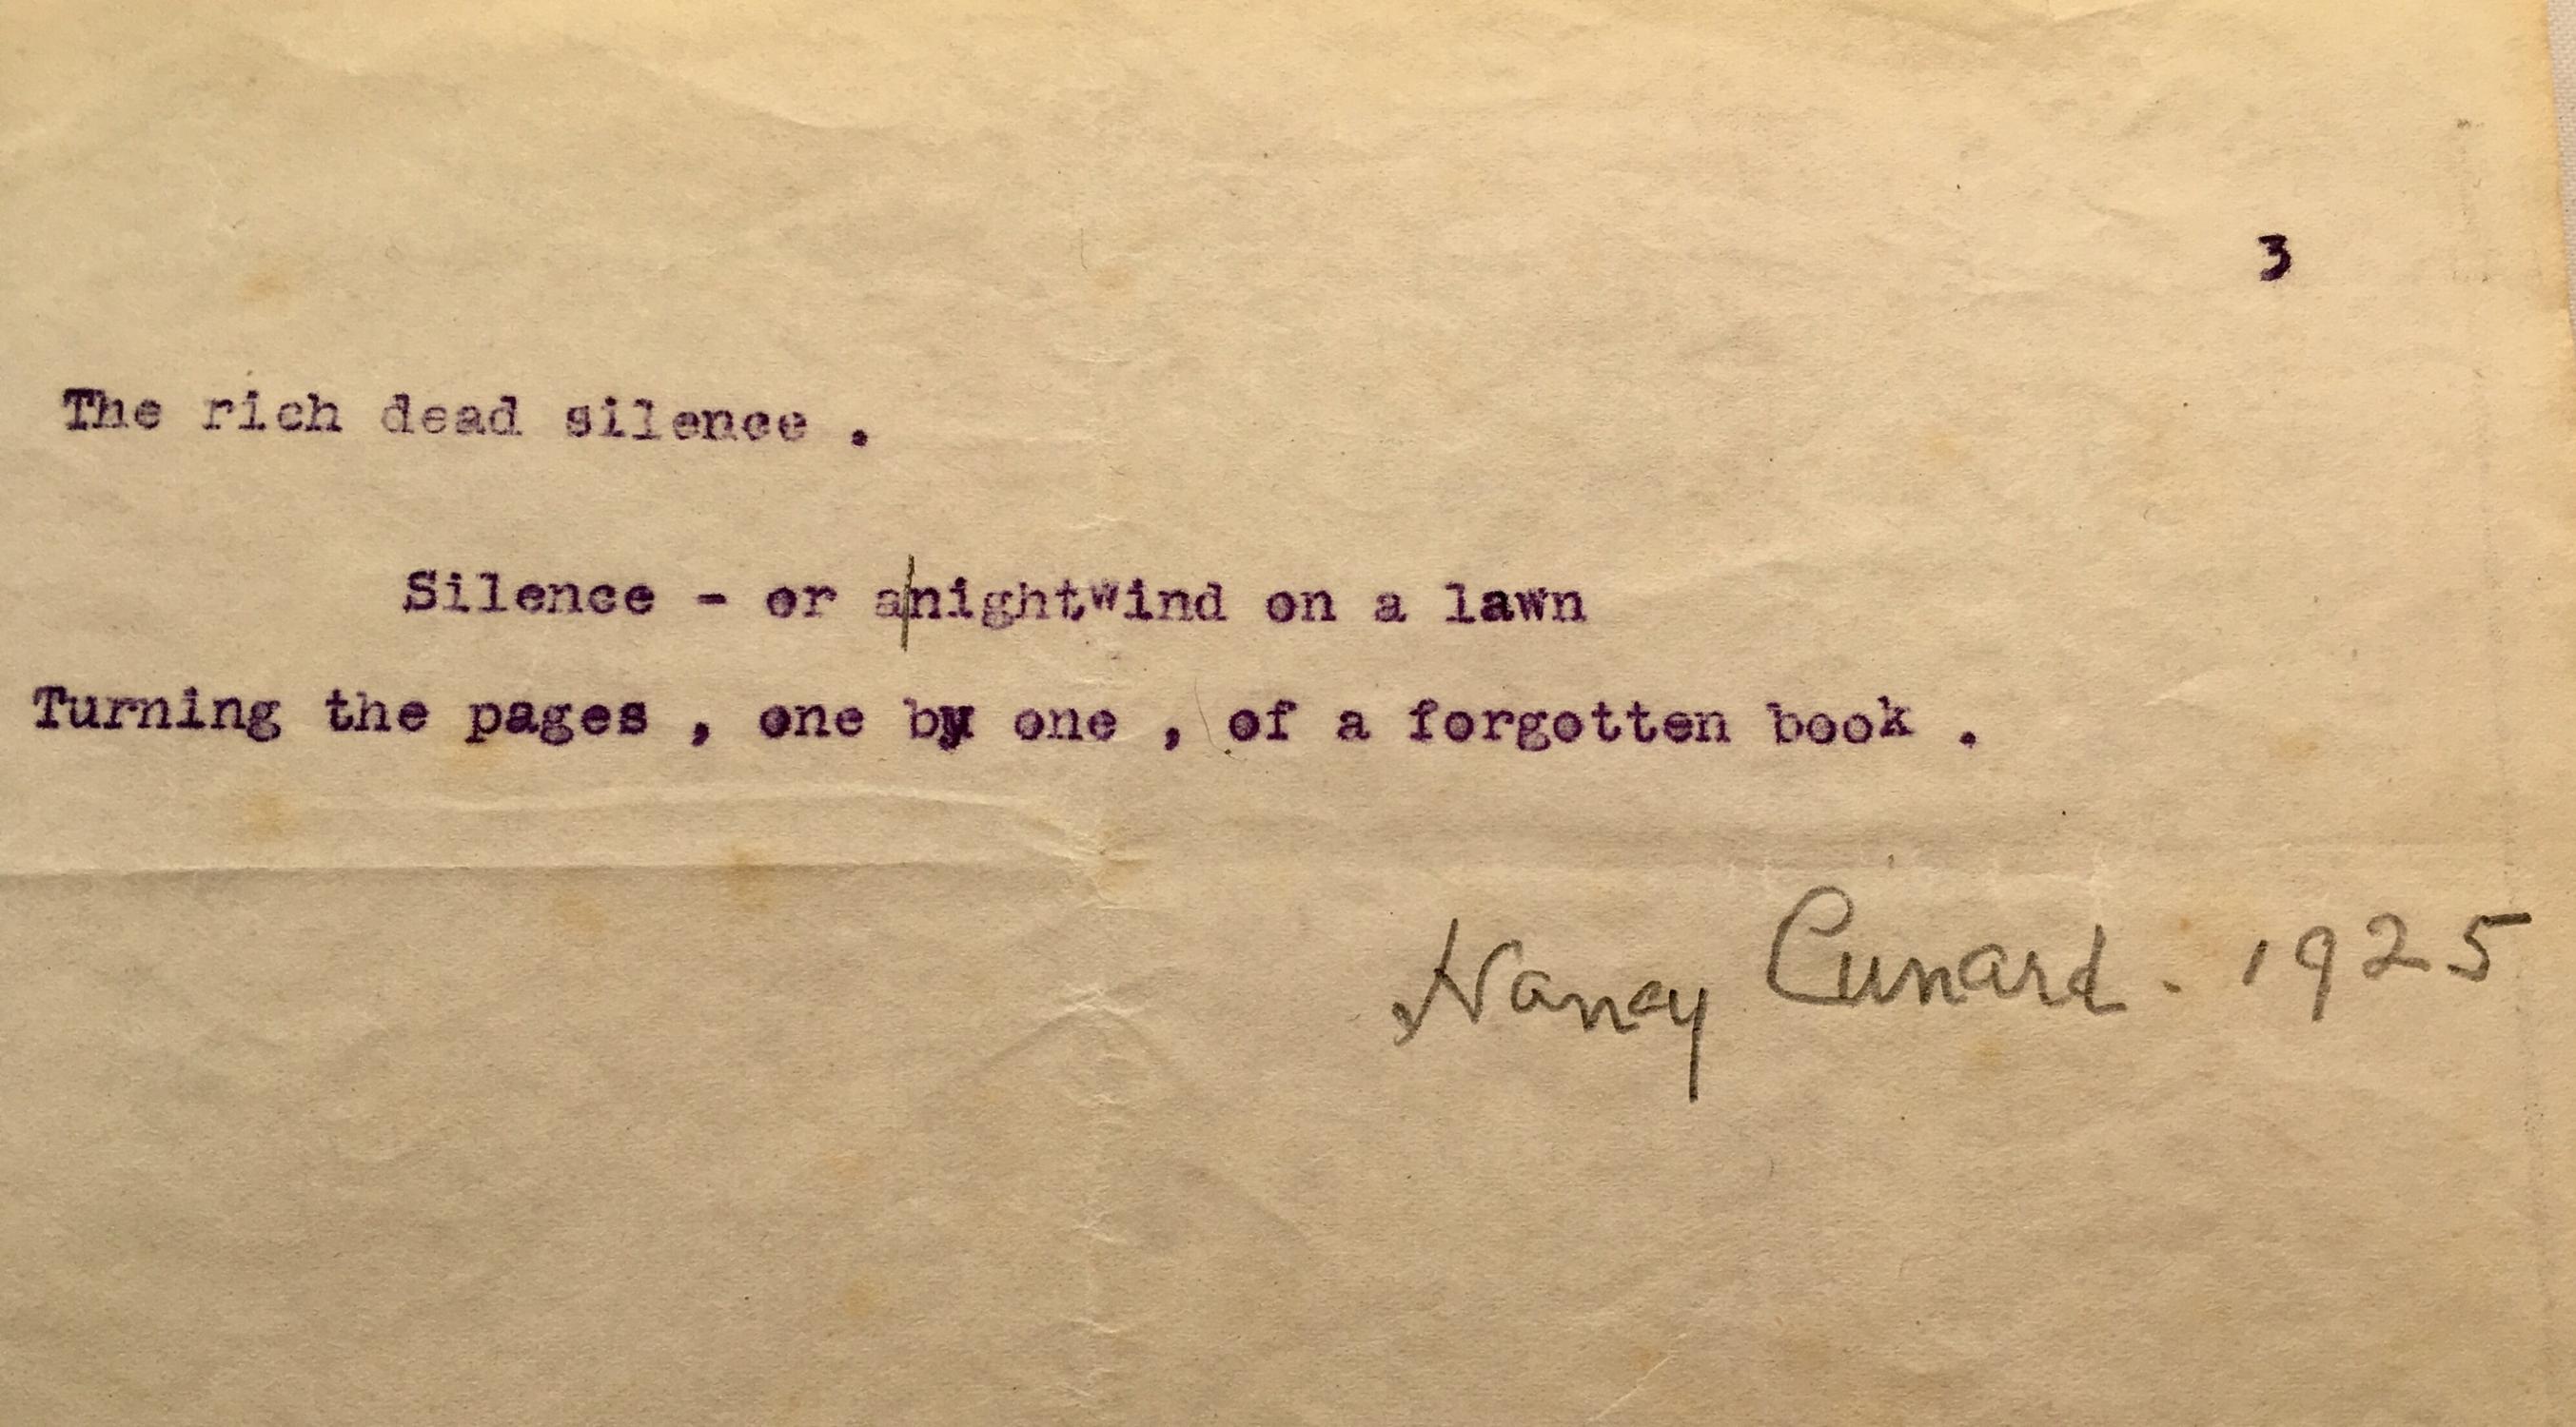 3
The rich dead silence .
Silence - or a|nightwind on a lawn
Turning the pages , one by one , of a forgotten book .
Nancy Cunard - 1925